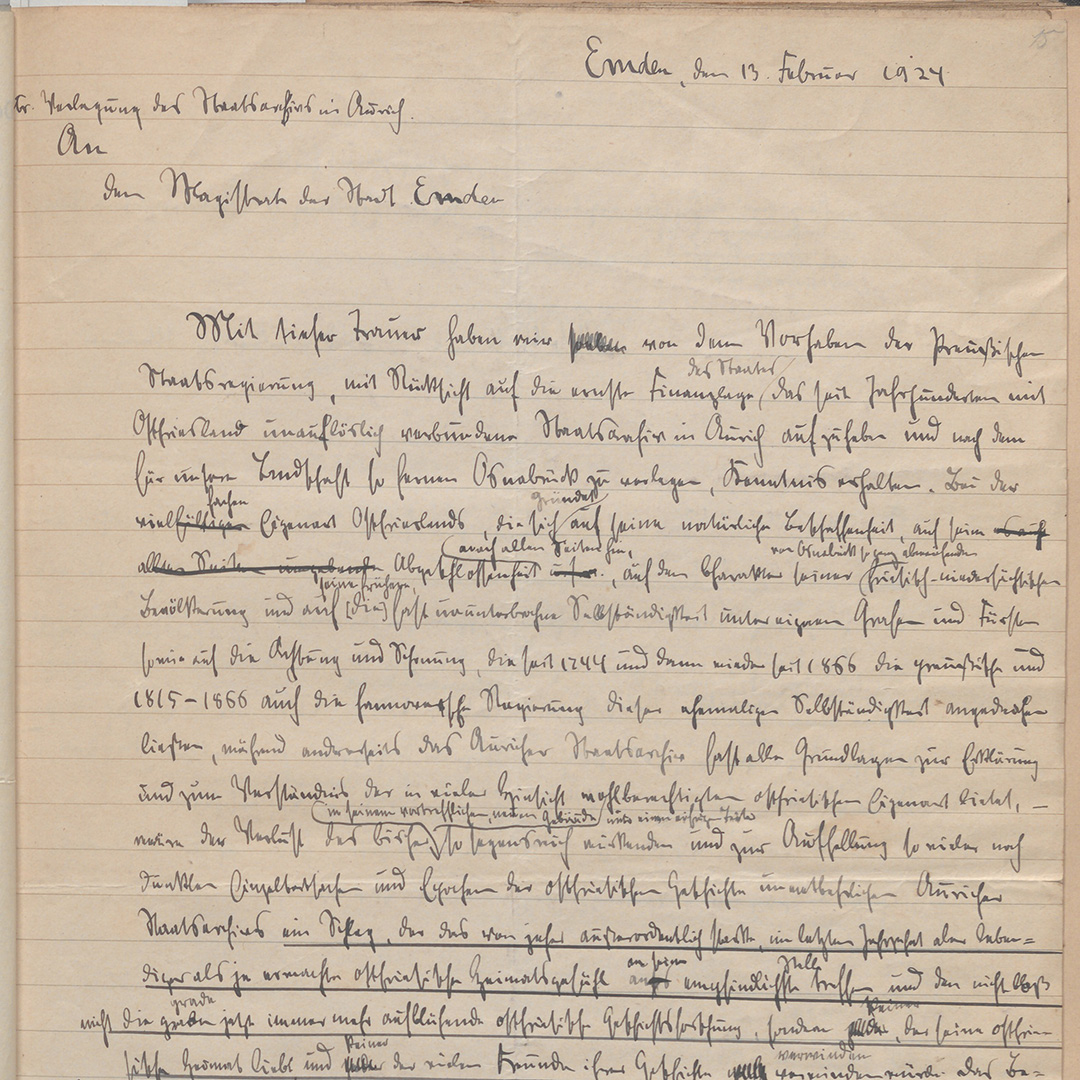 15
Emden, den 13. Februar 1924
tr. Verlegung des Staatsarchivs in Aurich.
An
den Magistrat der Stadt Emden
Mit tiefer Trauer haben wir von dem Vorhaben der Preußischen
des Staates
Staatsregierung, mit Rücksicht auf die ernste Finanzlage das seit Jahrhunderten mit
Ostfriesland unauflöslich verbundene Staatsarchiv in Aurich aufzuheben und nach dem
für unsere Landschaft so fernen Osnabrück zu verlegen, Kenntnis erhalten. Bei der
fachen gründet
vielfältigen Eigenart Ostfrieslands, die sich auf seine natürliche Beschaffenheit, auf seine
nach allen Seiten hin, von Osnabrück so ganz abweichenden
allen Seiten umgebende Abgeschlossenheit, auf den Charakter seiner friesisch-niedersächsischen
seine frühere,
Bevölkerung und auf [die] fast ununterbrochne Selbständigkeit unter eigenen Grafen und Fürsten
sowie auf die Achtung und Schonung, die seit 1744 und dann wieder seit 1866 die preußische und
1815-1866 auch die hannoversche Regierung dieser ehemaligen Selbständigkeit angedeihen
ließen, während anderseits das Auricher Staatsarchiv fast alle Grundlagen zur Erklärung
und zum Verständnis der in vieler Hinsicht wohlberechtigten ostfriesischen Eigenart bietet, —
in seinem vortrefflichen, neuen Gebäude
wäre der Verlust des bisher so segensreich wirkenden und zur Aufhellung so vieler noch
dunklen Einzeltatsachen und Epochen der ostfriesischen Geschichte unentbehrlichen Auricher
Staatsarchivs ein Schlag, der das von jeher außerordentlich starke, im letzten Jahrzehnt aber leben=
an seiner Stelle
diger als je erwachte ostfriesische Heimatsgefühl empfindlichste treffen und den nicht bloß
grade keiner
nicht die jetzt immer mehr aufblühende ostfriesische Geschichtsforschung, sondern, der seine ostfrie=
keiner verwinden
sische Heimat liebt und der vielen Freunde ihrer Geschichte verwinden würde. Das Be=